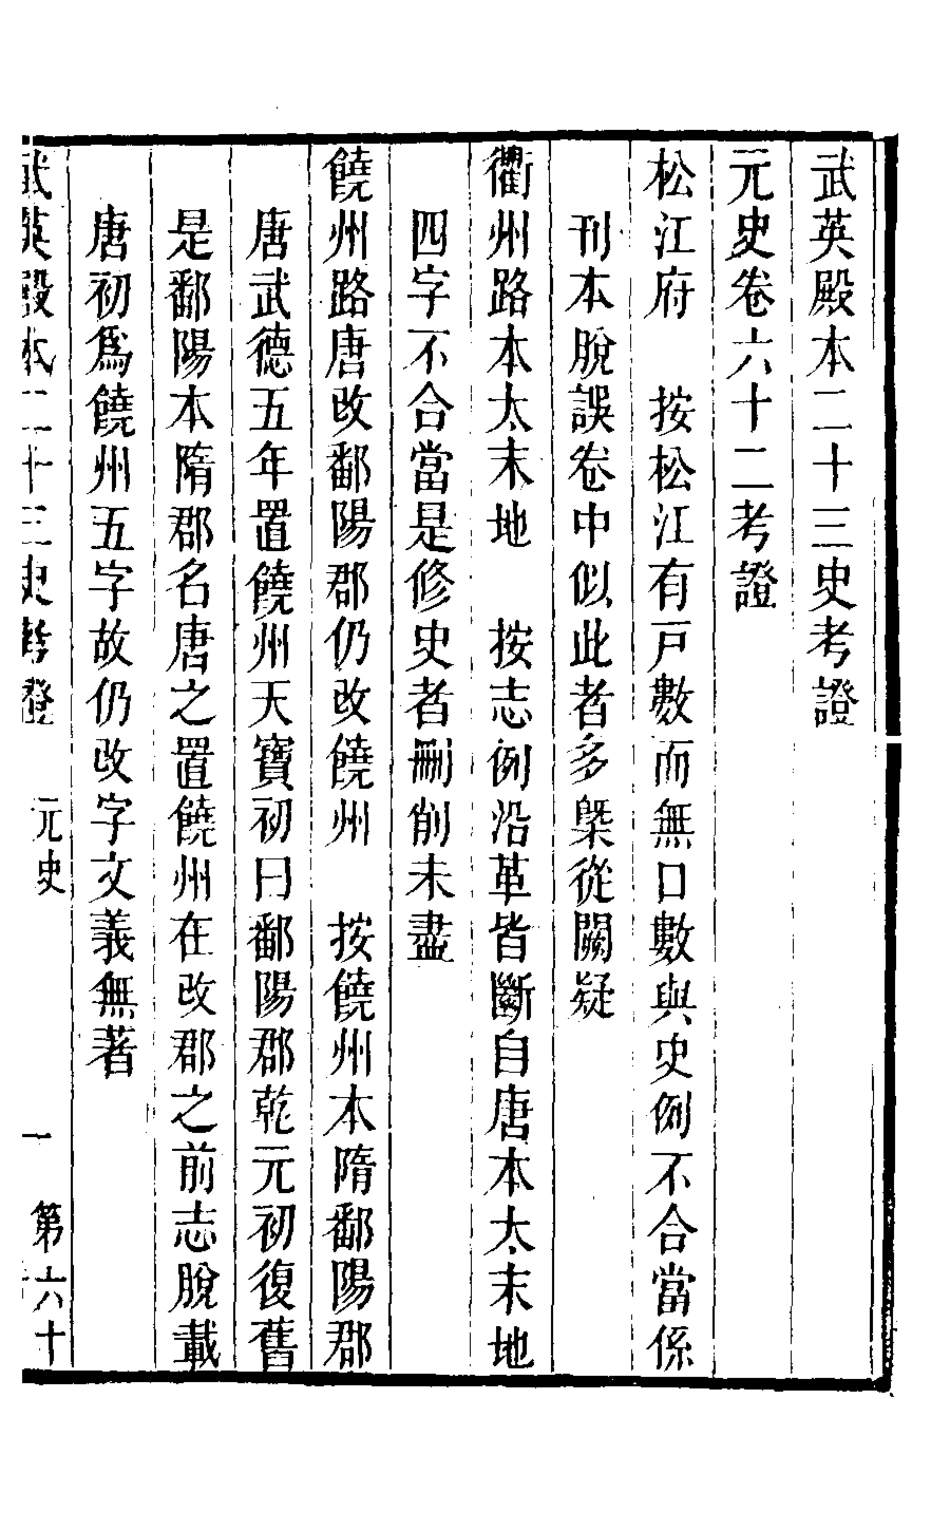 武英殿本二十三史考證
元史卷六十二考證
松江府　按松江有戸數而無口數與史例不合當係
刊本脫誤卷中似此者多槩從闕疑
衢州路本太末地　按志例沿革皆斷自唐本太末地
四字不合當是修史者刪削未盡
饒州路唐改鄱陽郡仍改饒州　按饒州本隋鄱陽郡
唐武德五年置饒州天寶初曰鄱陽郡乾元初復舊
是鄱陽本隋郡名唐之置饒州在改郡之前志脫載
唐初爲饒州五字故仍改字文義無著
武英殿本二十三史考證　元史　一　第六十